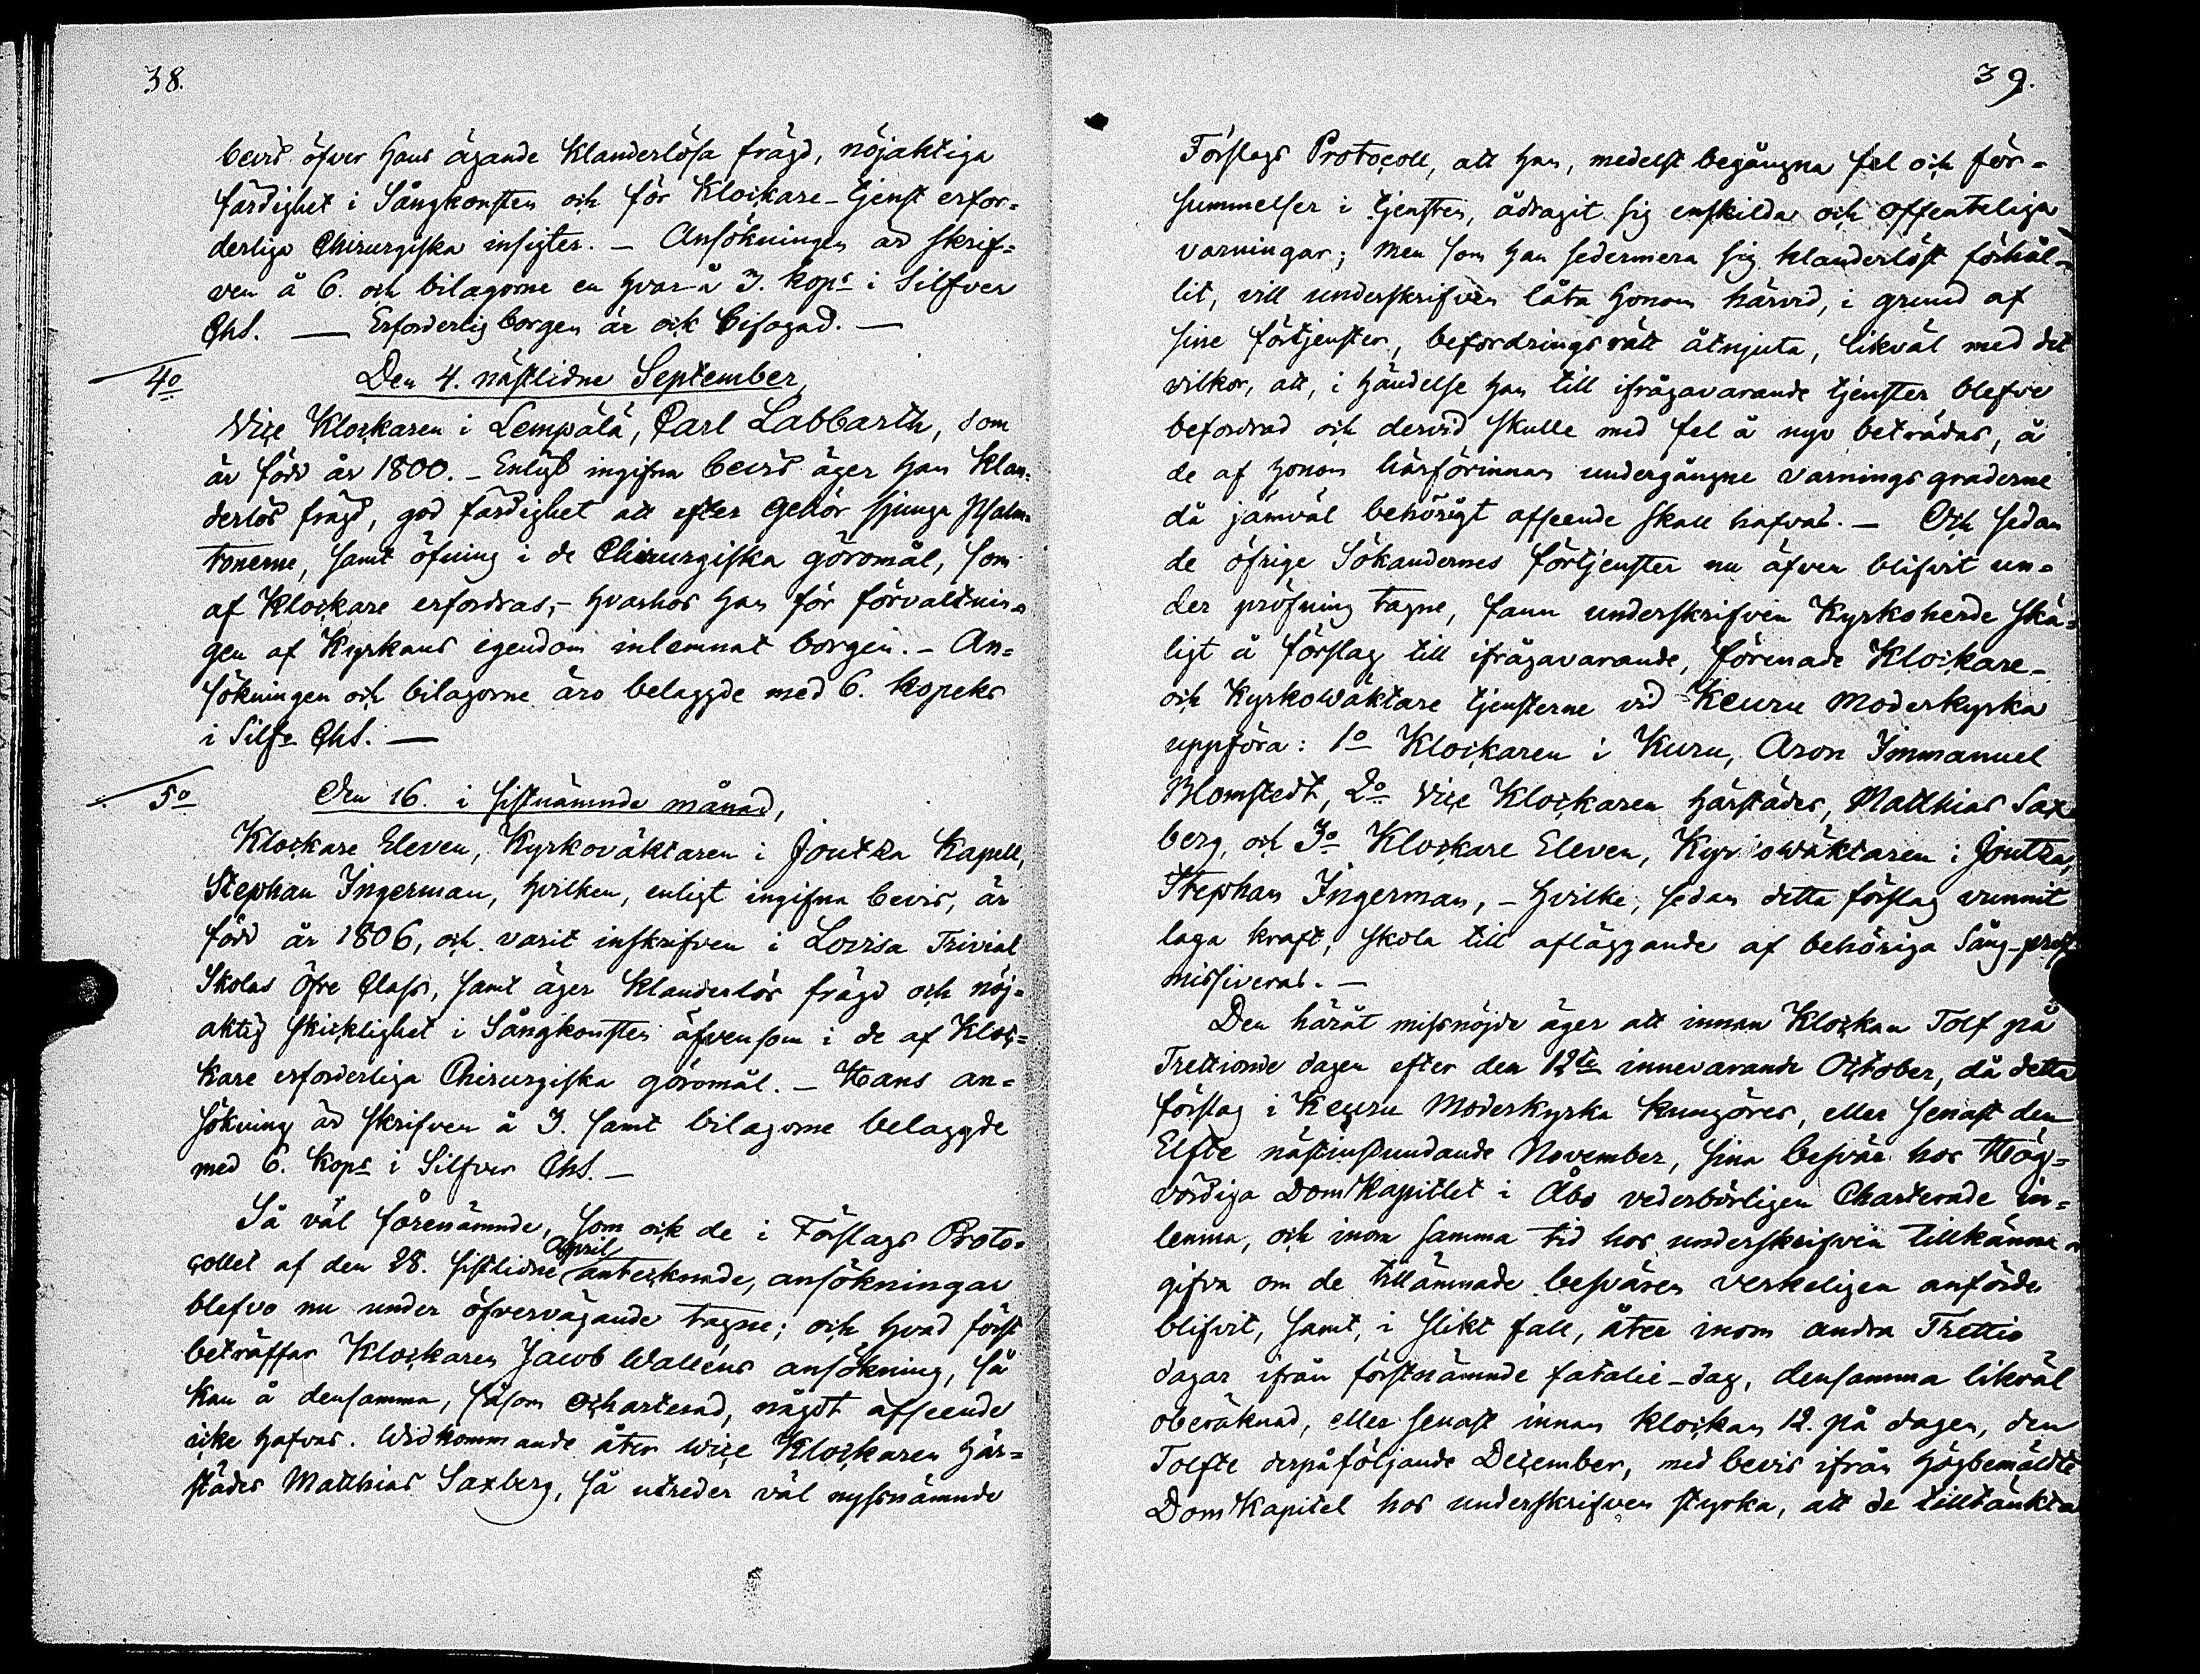 38.
bevis öfver hans ägande klanderlösa frägd, nöjaktiga
färdighet i Sångkonsten och för Klockare-tjenst erfor=
derliga Chirurgiska insigter. - Ansökningen är skrif=
ven å 6. och bilagorne en hvar å 3. kops i Silfver
Chs. — Erforderlig borgen är ock bifogad. —
4o Den 4. nästlidne September,
Vice Klockaren i Lempälä, Carl Labbarth, som
är född år 1800. - Enligt ingifna bevis äger han klan=
derlös frägd, god färdighet att efter gehör sjunga Psalm=
tonerne, samt öfning i de Chirurgiska göromål, som
af Klockare erfordras; - hvarhos han för förvaltnin=
gen af Kyrkans egendom inlemnat borgen. - An=
sökningen och bilagorne äro belaggde med 6. kopeks
i Silfr Chs. —
5o Den 16. i sistnämnde månad,
Klockare Eleven, Kyrkoväktaren i Joutza Kapell,
Stephan Ingerman, hvilken, enligt ingifna bevis, är
född år 1806, och varit inskrifven i Lovisa Trivial
Skolas Öfre Class, samt äger klanderlös frägd och nöj=
aktig skicklighet i Sångkonsten äfvensom i de af Kloc=
kare erforderliga Chirurgiska göromål. - Hans an=
sökning är skrifven å 3. samt bilagorne belaggde
med 6. kops i Silfver Chs. -
Så väl förenämnde, som ock de i Förslags Proto=
collet af den 28. sistlidne April antecknade, ansökningar
blefvo nu under öfvervägande tagne; och hvad först
beträffar Klockaren Jacob Wallens ansökning, så
kan å densamma, såsom ocharterad, något afseende
icke hafvas. Widkommande åter Wice Klockaren här=
städes Matthias Saxberg, så utreder väl nyssnämnde
39.
Förslags Protocoll, att han, medelst begångna fel och för=
summelser i tjensten, ådragit sig enskilda och offenteliga
varningar; men som han sedermera sig klanderlöst förhål=
lit, vill underskrifven låta honom härvid, i grund af
sine förtjenster, befordringsrätt åtnjuta, likväl med det
vilkor, att, i händelse han till ifrågavarande tjenster blefve
befordrad och dervid skulle med fel å nyo beträdas, å
de af honom härförinnan undergångne varningsgraderne
då jämväl behörigt afseende skall hafvas. - Och sedan
de öfrige Sökandernes förtjenster nu äfven blifvit un=
der pröfning tagne, fann underskrifven Kyrkoherde skä=
ligt å förslag till ifrågavarande, förenade Klockare-
och Kyrkowäktare tjensterne vid Keuru Moderkyrka
uppföra: 1o Klockaren i Kuru, Aron Immanuel
Blomstedt, 2o Vice Klockaren härstädes, Matthias Sax
berg, och 3o Klockare Eleven, Kyrkowäktaren i Joutza,
Stephan Ingerman, - hvilke, sedan detta förslag vunnit
laga kraft, skola till afläggande af behöriga Sång-prof
missiveras. —
Den häråt missnöjde äger att innan Klockan Tolf på
Trettionde dagen efter den 12te innevarande October, då detta
förslag i Keuru Moderkyrka kungöres, eller senast den
Elfte nästinstundande November, sina besvär hos Hög=
vördiga DomKapitlet i Åbo vederbörligen Charterade in=
lemna, och inom samma tid hos underskrifven tillkänna
gifva om de tillämnade besvären verkeligen anförde
blifvit, samt, i slikt fall, åter inom andra Trettio
dagar ifrån förstnämnde fatalie-dag, densamma likväl
oberäknad, eller senast innan klockan 12. på dagen, den
Tolfte derpåföljande December, med bevis ifrån högbemäldte
DomKapitel hos underskrifven styrka, att de tilltänkta